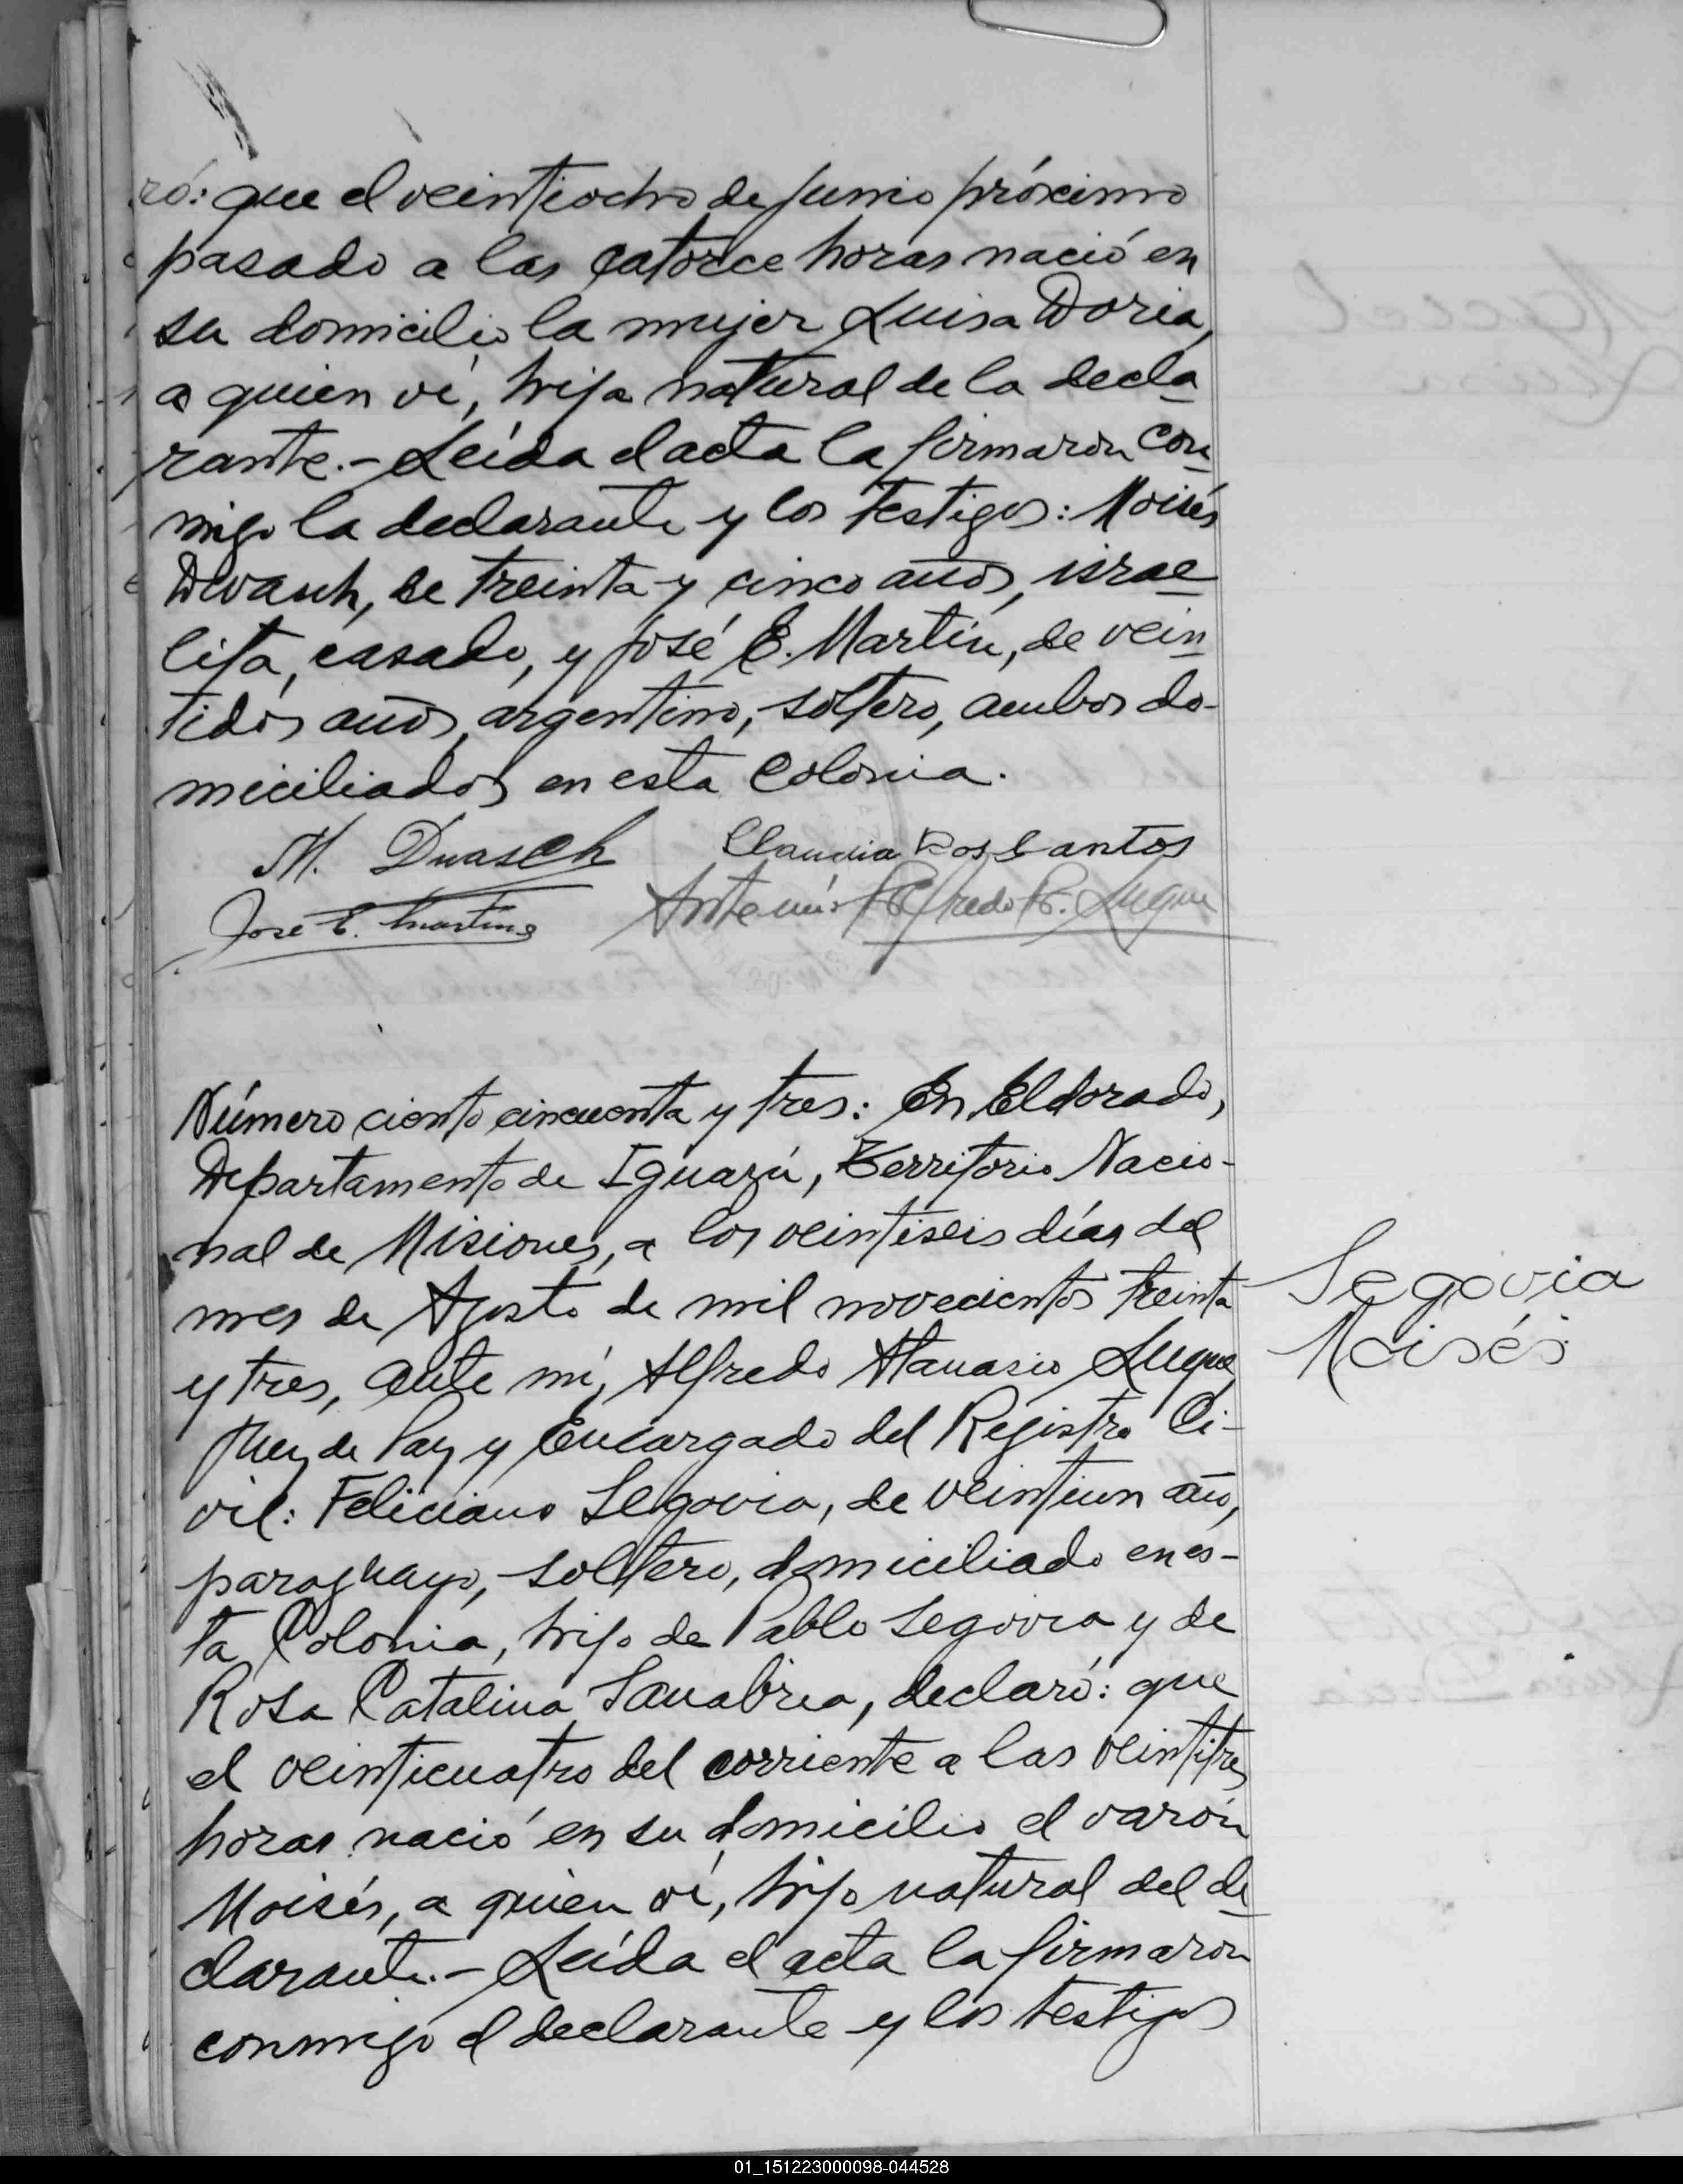 ró: que el veintiocho de Junio próximo
pasado a las catorce horas nació en
su domicilio la mujer Luisa Doria,
a quien ví, hija natural de la decla
rante.- Leída el acta la firmaron con
migo la declarante y los testigos: Moisés
Dwasch, de treinta y cinco años, israe
lita, casado, y José E. Martín, de vein
tidós años, argentino, soltero, ambos do-
miciliados en esta Colonia.
M. Dwasch Claudia Dos Santos
José E. Martins Ante mí: Alfredo A. Luque
Número ciento cincuenta y tres: En Eldorado,
Departamento de Iguazú, Territorio Nacio-
nal de Misiones, a los veintiseis días del
mes de Agosto de mil novecientos treinta
y tres, ante mí, Alfredo Atanasio Luque,
Juez de Paz y Encargado del Registro Ci-
vil: Feliciano Segovia, de veintiun año,
paraguayo, soltero, domiciliado en es-
ta Colonia, hijo de Pablo Segovia y de
Rosa Catalina Sanabria, declaró: que
el veinticuatro del corriente a las veintitres
horas nació en su domicilio el varón
Moisés, a quien ví, hijo natural del de
clarante.- Leída el acta la firmaron
conmigo el declarante y los testigos
Segovia
Moisés
01_151223000098-044528